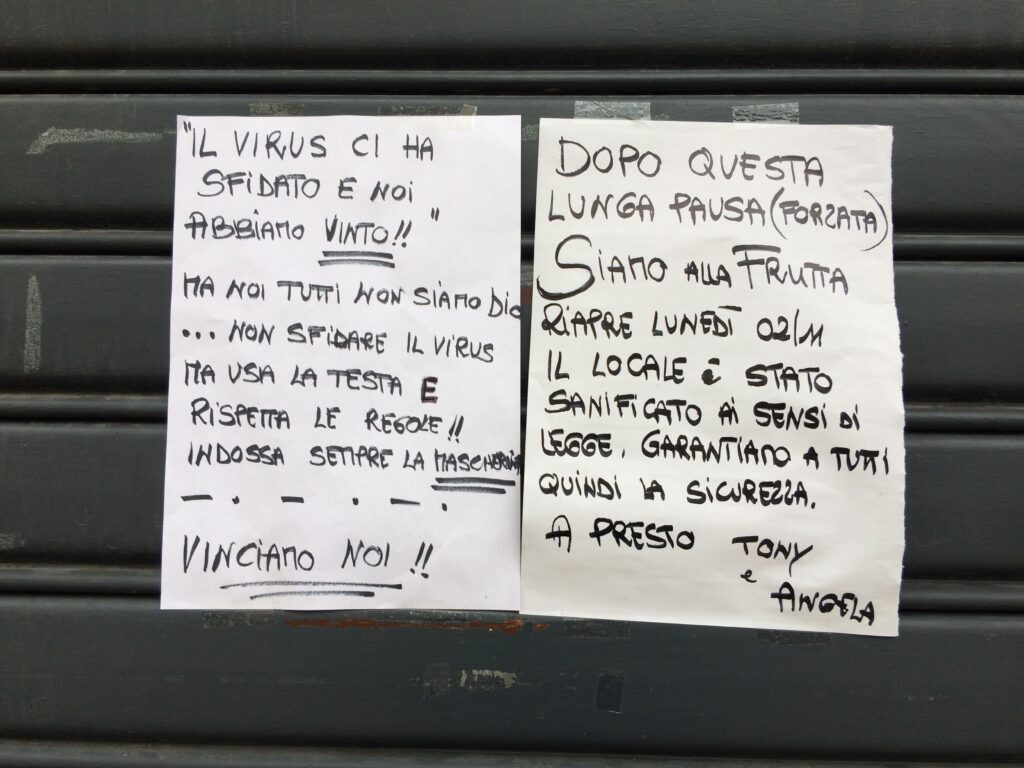 "IL VIRUS CI HA
SFIDATO E NOI
ABBIAMO VINTO!!"
MA NOI TUTTI NON SIAMO DIO
... NON SFIDARE IL VIRUS
MA USA LA TESTA E
RISPETTA LE REGOLE!!
INDOSSA SEMPRE LA MASCHERINA
— . — . — .
VINCIAMO NOI!!
DOPO QUESTA
LUNGA PAUSA (FORZATA)
SIAMO ALLA FRUTTA
RIAPRE LUNEDÌ 02/11
IL LOCALE È STATO
SANIFICATO AI SENSI DI
LEGGE. GARANTIAMO A TUTTI
QUINDI LA SICUREZZA.
A PRESTO TONY
e
ANGELA